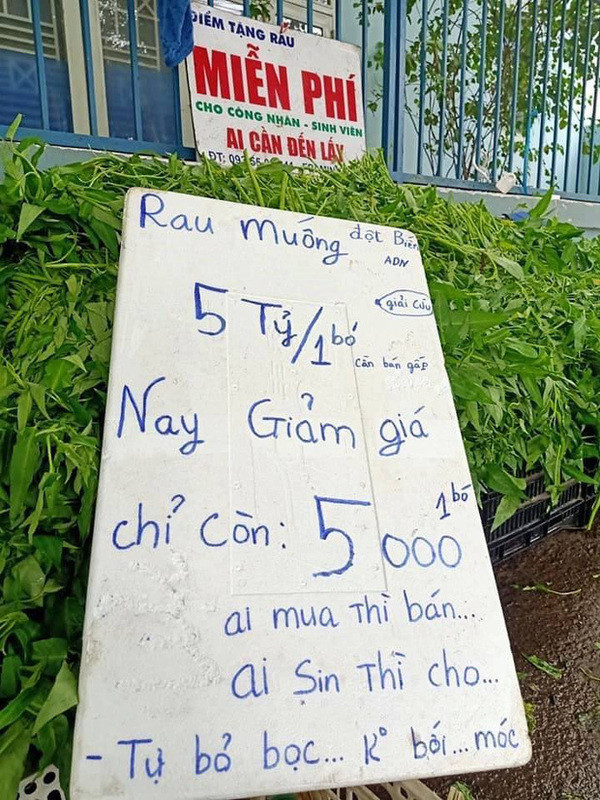 ĐIỂM TẶNG RAU
MIỄN PHÍ
CHO CÔNG NHÂN - SINH VIÊN
AI CẦN ĐẾN LẤY
ĐT:
Rau muống đột Biến
ADN
giải cứu
5 Tỷ/1 bó
Cần bán gấp
Nay Giảm giá
chỉ còn: 5000 1 bó
ai mua Thì bán...
ai Sin Thì cho...
- Tự bỏ bọc... K° bới... móc